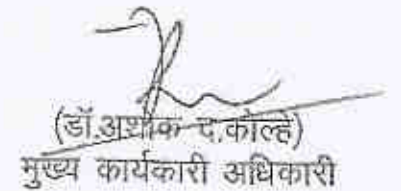 (डॉ.अशोक द.कोल्हे)
मुख्य कार्यकारी अधिकारी